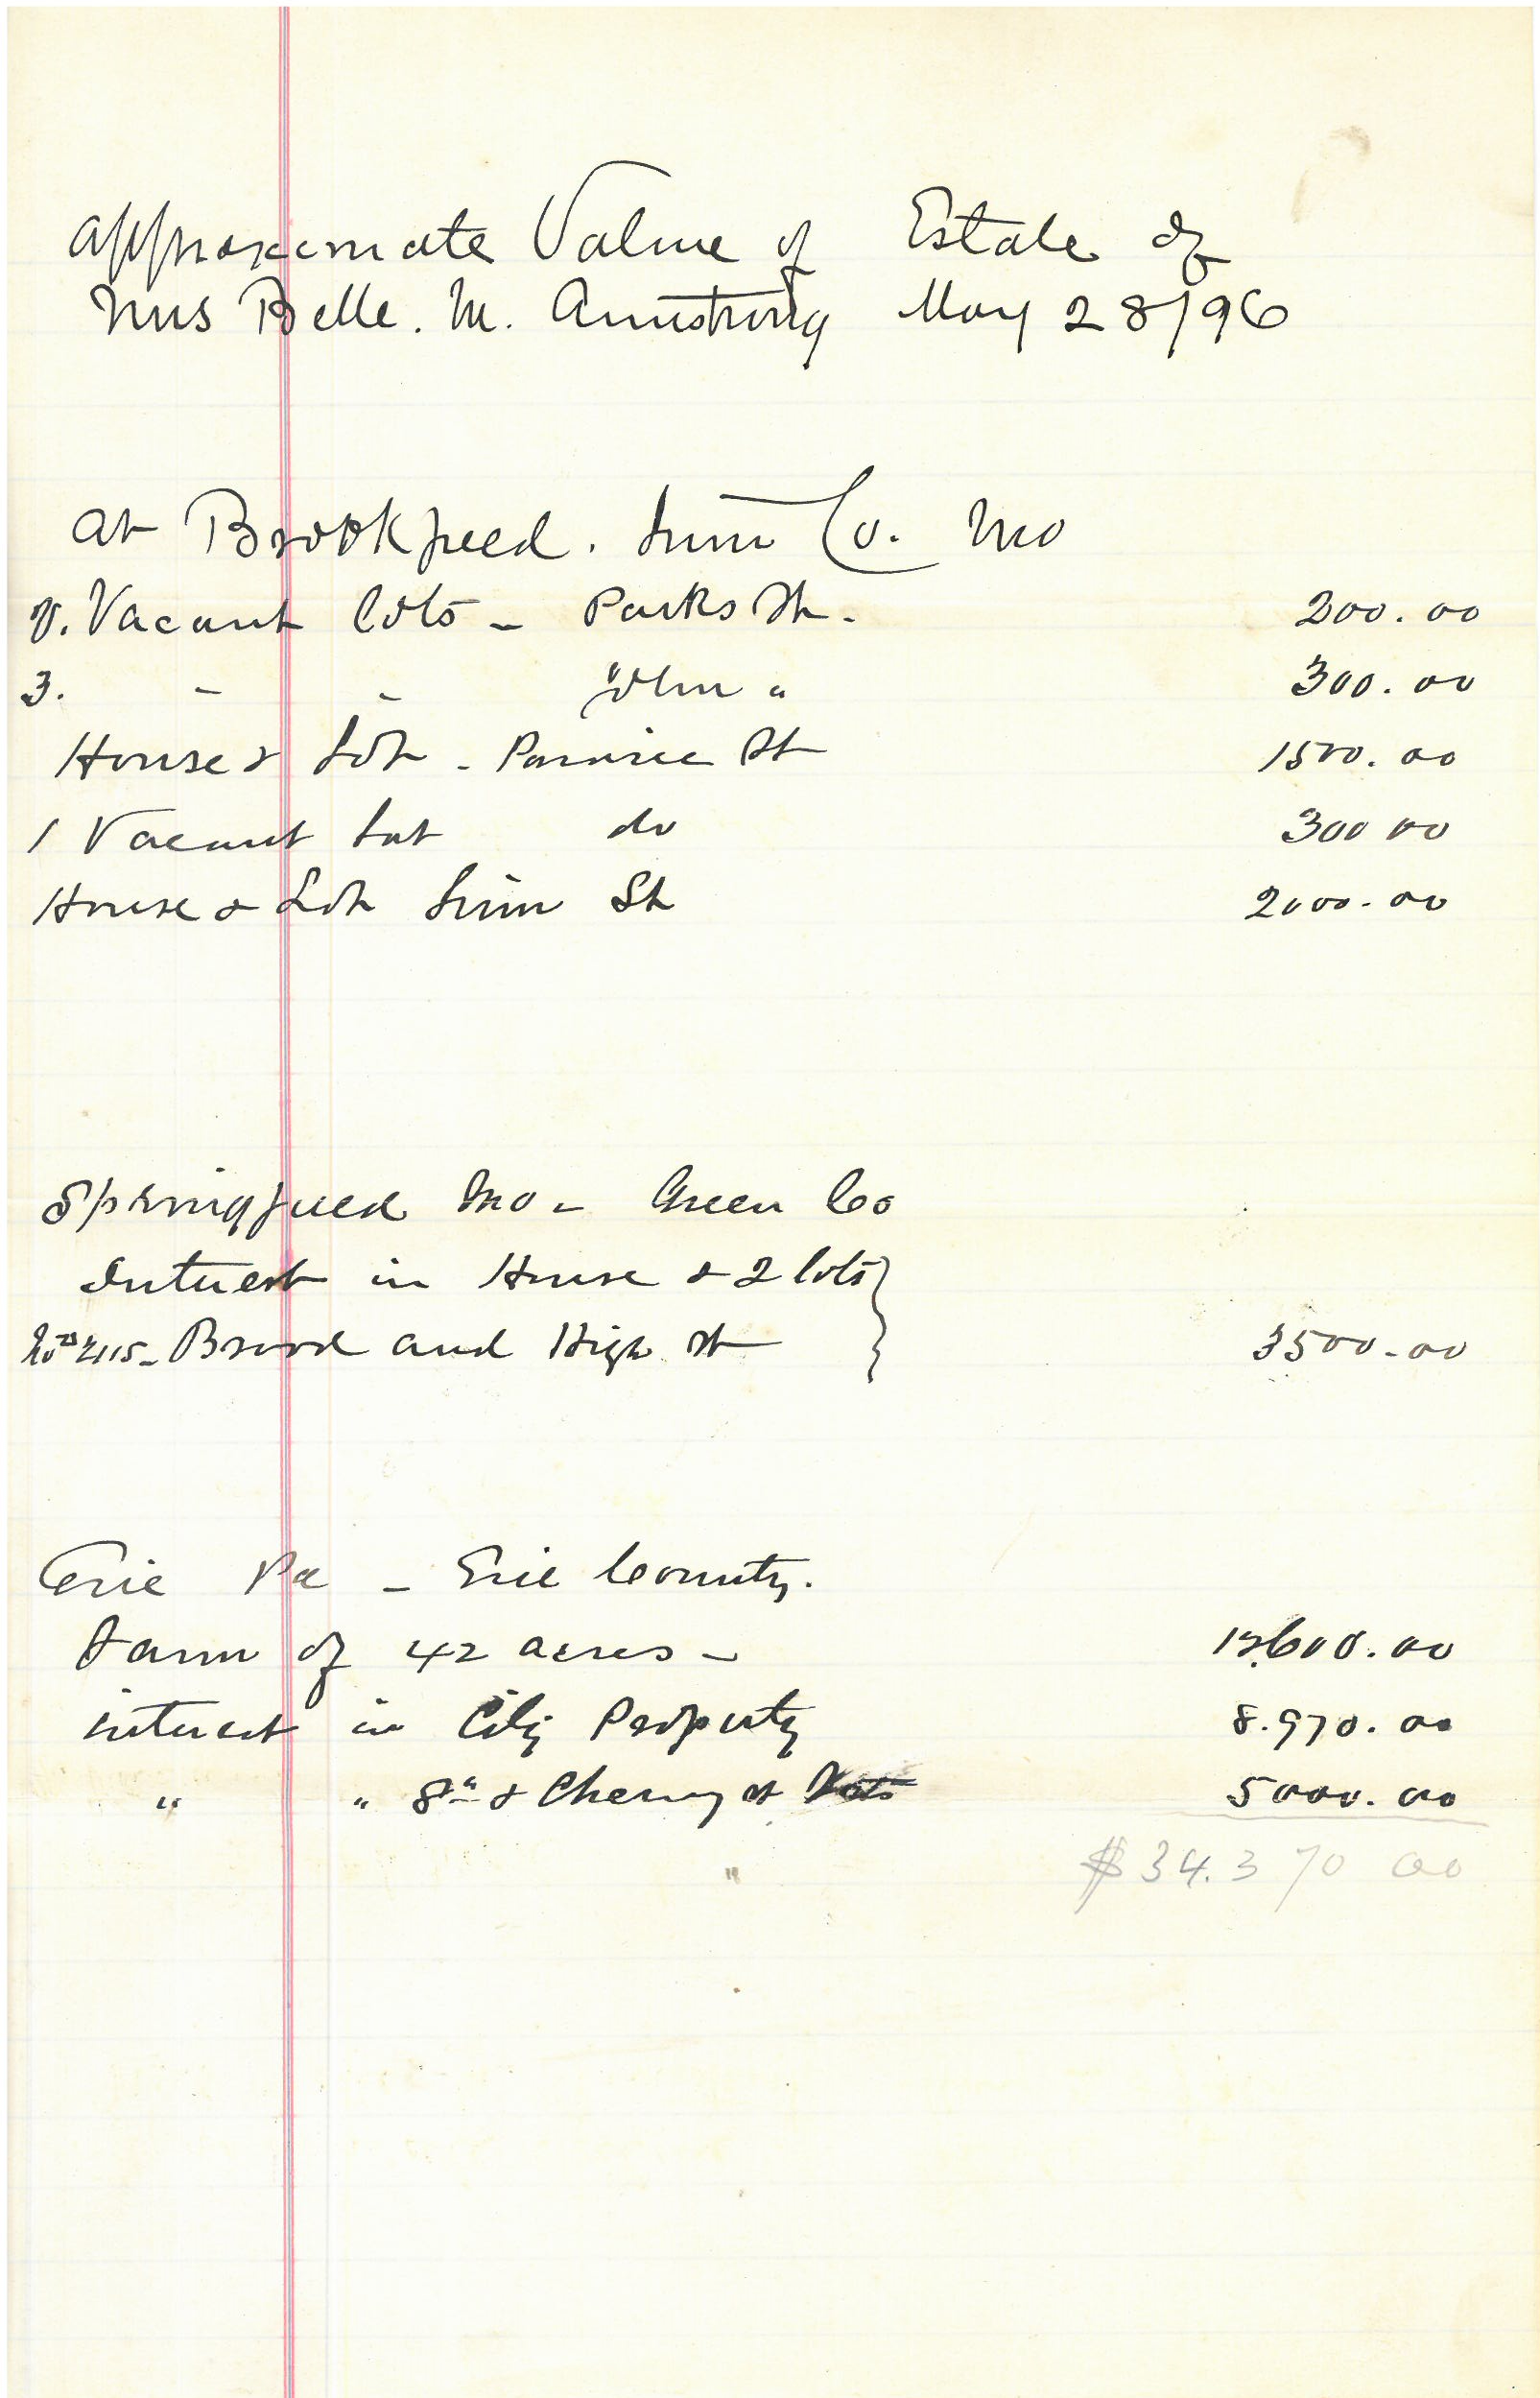 Approximate Value of Estate of
Mrs Belle. M. Armstrong May 28/96
at Brookfield. Linn Co. Mo
2. Vacant lots - Parks St. 200.00
3. - - John " 300.00
House & Lot - Prairie St 1500.00
1 Vacant Lot do 300 00
House & Lot Linn St 2000.00
Springfield Mo - Green Co
Interest in House & 2 lots
No 2115 - Broad and High st 3500.00
Erie Pa - Erie County.
Farm of 42 acres - 12,600.00
interest in City Property 8.970.00
" " 8" & Cherry st 5000.00
"
$34.370 00